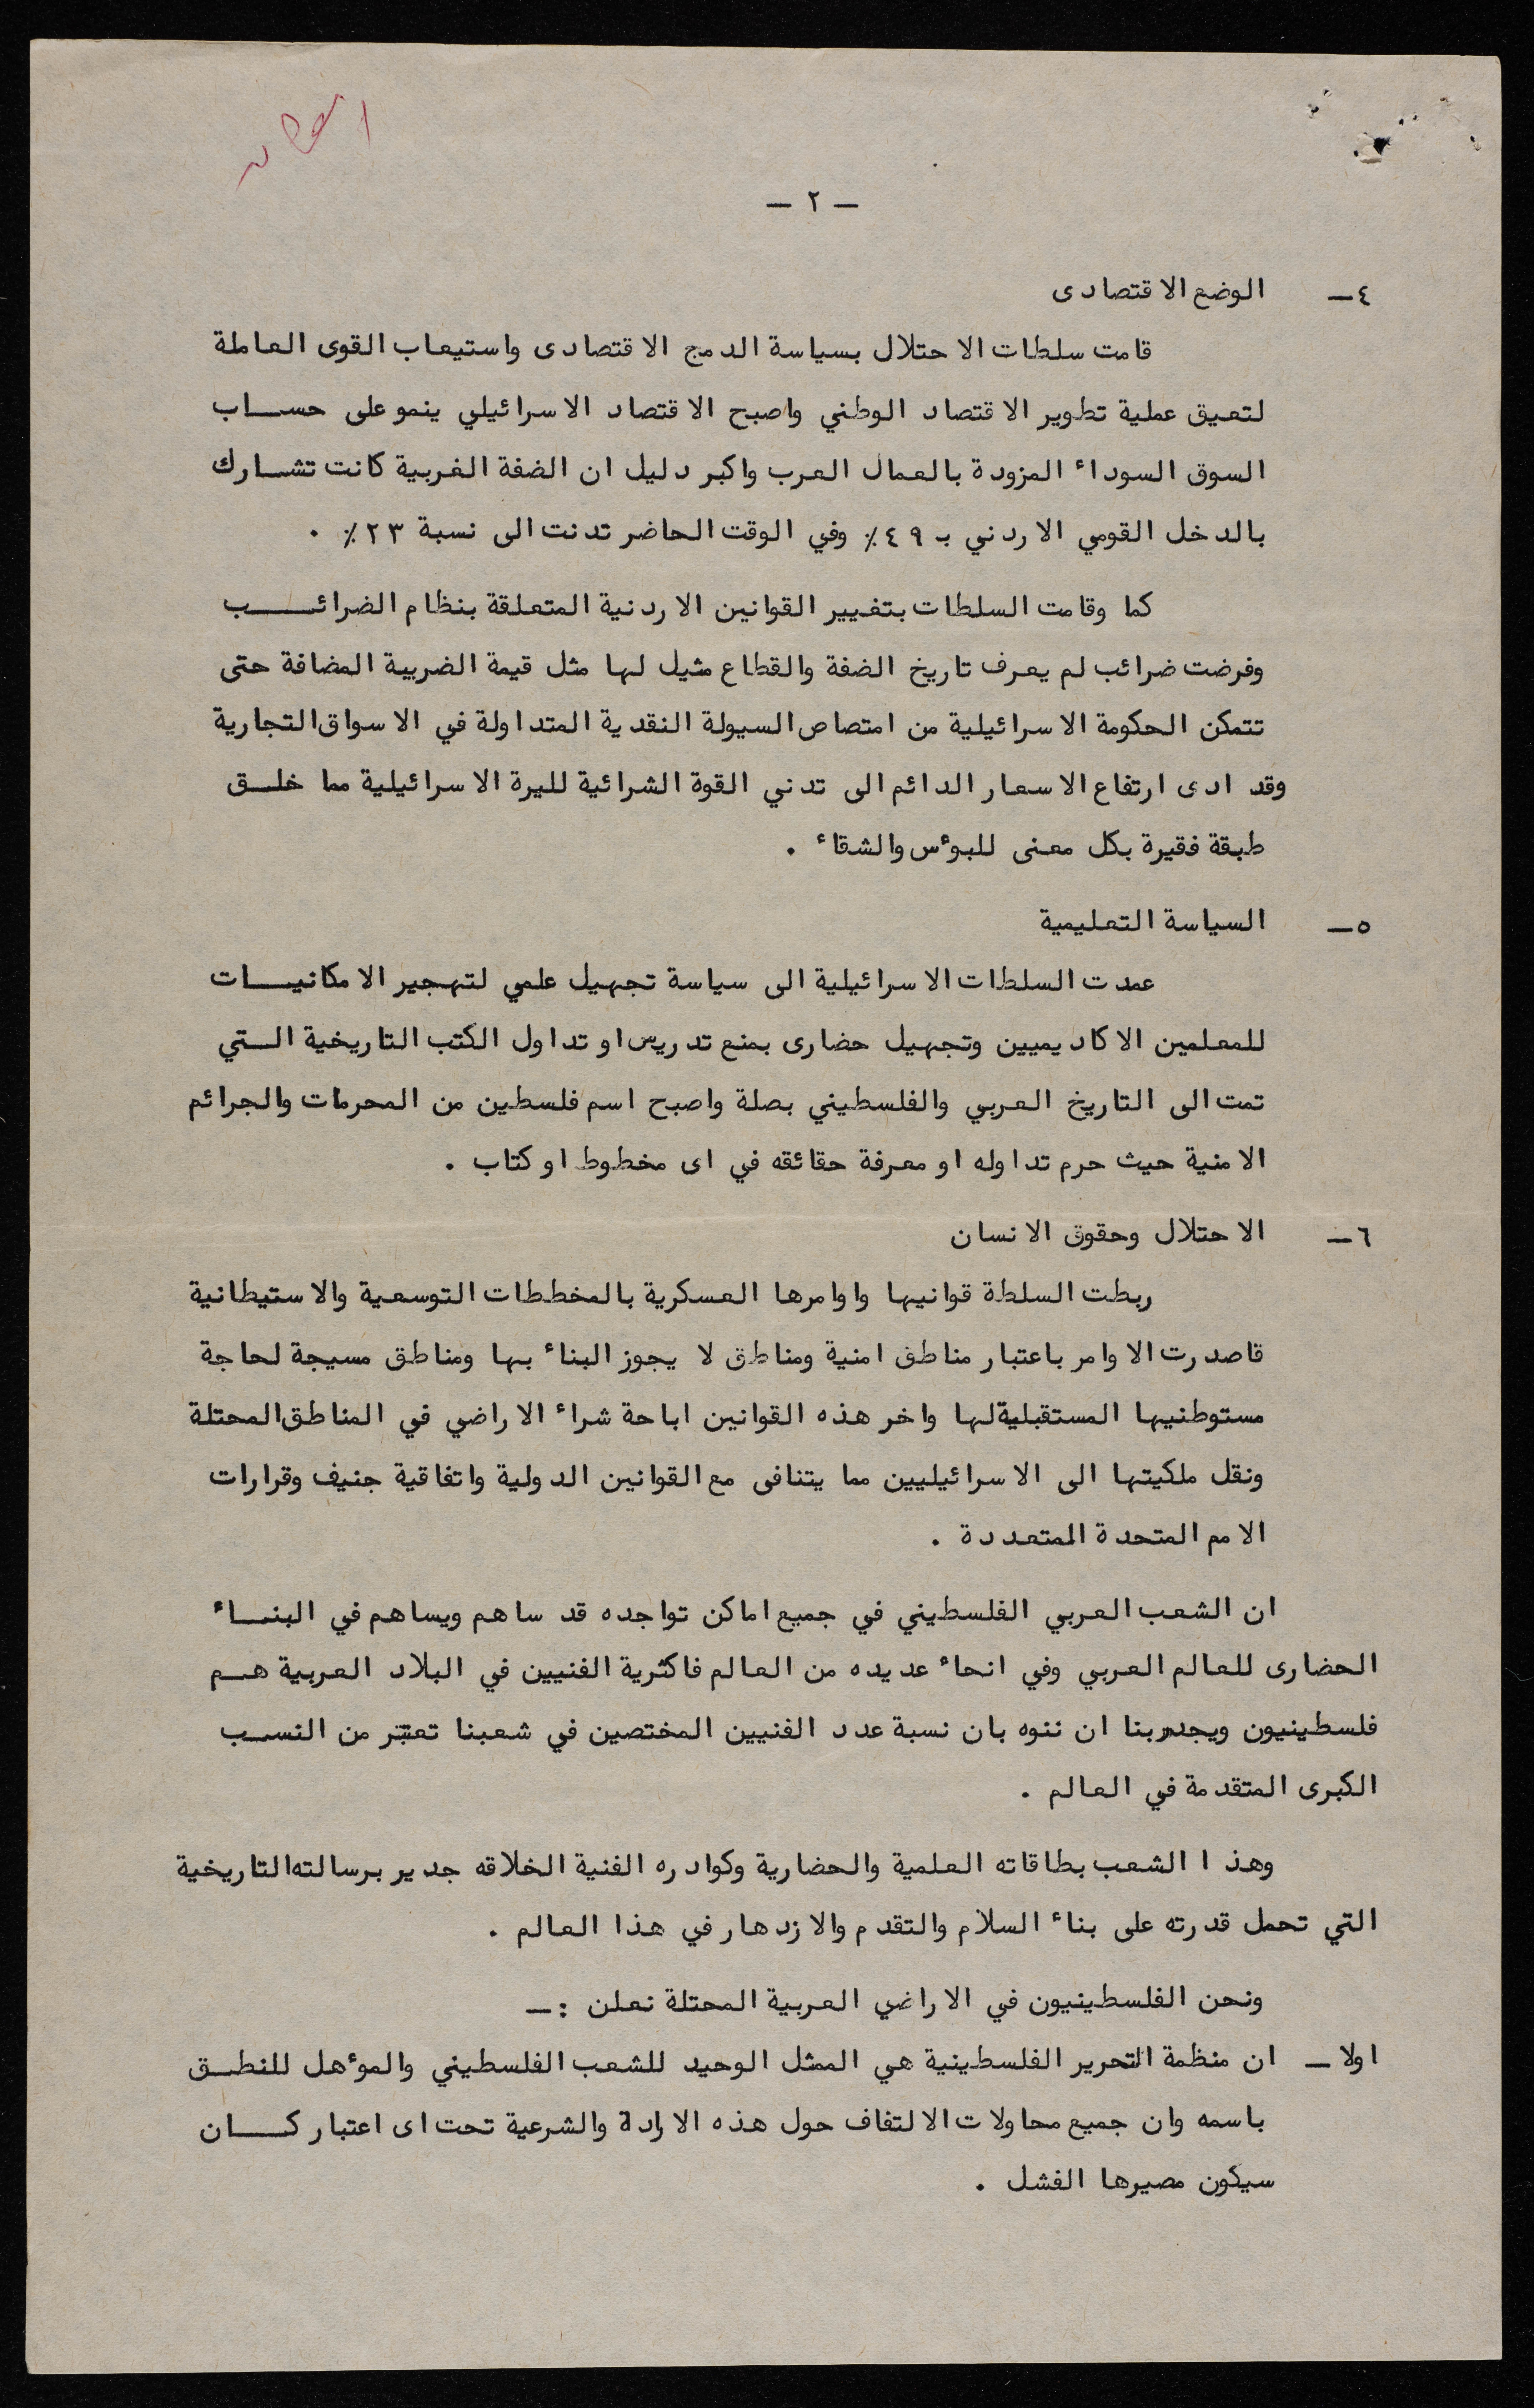 — ٢ —
٤ـ الوضع الاقتصادى
قامت سلطات الاحتلال بسياسة الدمج الاقتصادى واستيعاب القوى العاملة
لتعيق عملية تطوير الاقتصاد الوطني واصبح الاقتصاد الاسرائيلي ينمو على حســـاب
السوق السوداء المزودة بالعمال العرب واكبر دليل ان الضفة الغربية كانت تشـــارك
بالدخل القومي الاردني بـ ٤٩٪ وفي الوقت الحاضر تدنت الى نسبة ٢٣٪ .
كما وقامت السلطات بتغيير القوانين الاردنية المتعلقة بنظام الضرائـــب
وفرضت ضرائب لم يعرف تاريخ الضفة والقطاع مثيل لها مثل قيمة الضريبة المضافة حتى
تتمكن الحكومة الاسرائيلية من امتصاص السيولة النقدية المتداولة في الاسواق التجارية
وقد ادى ارتفاع الاسعار الدائم الى تدني القوة الشرائية لليرة الاسرائيلية مما خلـــق
طبقة فقيرة بكل معنى للبوٴس والشقاء .
٥ـ السياسة التعليمية
عمدت السلطات الاسرائيلية الى سياسة تجهيل علمي لتهجير الامكانيـــات
للمعلمين الاكاديميين وتجهيل حضارى بمنع تدريس او تداول الكتب التاريخية الـــتي
تمت الى التاريخ العربي والفلسطيني بصلة واصبح اسم فلسطين من المحرمات والجرائم
الامنية حيث حرم تداوله او معرفة حقائقه في اى مخطوط او كتاب .
٦ـ الاحتلال وحقوق الانسان
ربطت السلطة قوانيها واوامرها العسكرية بالمخططات التوسعية والاستيطانية
قاصدرت الاوامر باعتبار مناطق امنية ومناطق لا يجوز البناء بها ومناطق مسيجة لحاجة
مستوطنيها المستقبلية لها واخر هذه القوانين اباحة شراء الاراضي في المناطق المحتلة
ونقل ملكيتها الى الاسرائيليين مما يتنافى مع القوانين الدولية واتفاقية جنيف وقرارات
الامم المتحدة المتعددة .
ان الشعب العربي الفلسطيني في جميع اماكن تواجده قد ساهم ويساهم في البنـــاء
الحضارى للعالم العربي وفي انحاء عديده من العالم فاكثرية الفنيين في البلاد العربية هـــم
فلسطينيون ويجدر بنا ان ننوه بان نسبة عدد الفنيين المختصين في شعبنا تعتبر من النســـب
الكبرى المتقدمة في العالم .
وهذا الشعب بطاقاته العلمية والحضارية وكوادره الفنية الخلاقه جدير برسالته التاريخية
التي تحمل قدرته على بناء السلام والتقدم والازدهار في هذا العالم .
ونحن الفلسطينيون في الاراضي العربية المحتلة نعلن :ـ
اولا ـ ان منظمة التحرير الفلسطينية هي الممثل الوحيد للشعب الفلسطيني والموٴهل للنطـــق
باسمه وان جميع محاولات الالتفاف حول هذه الارادة والشرعية تحت اى اعتبار كـــان
سيكون مصيرها الفشل .